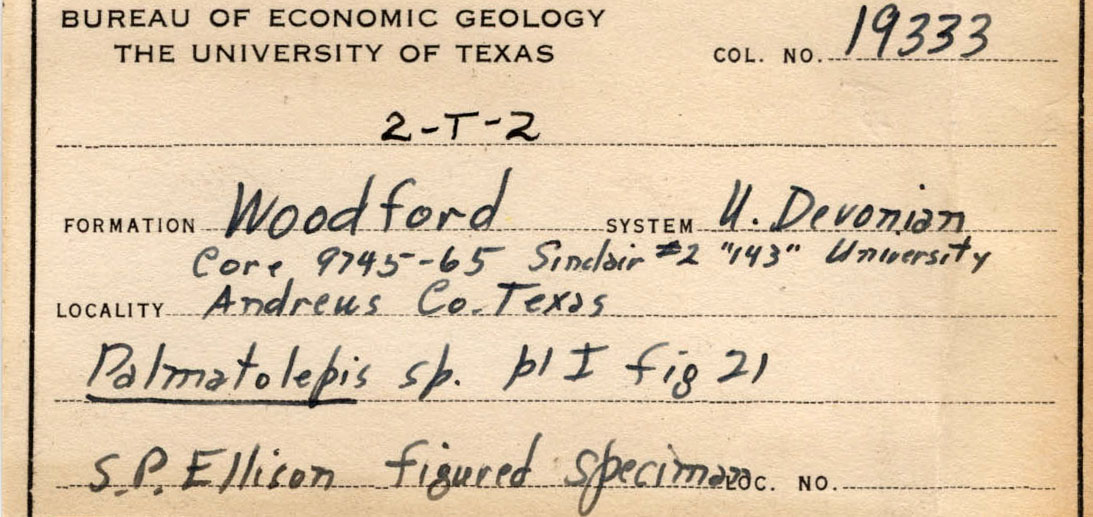 BUREAU OF ECONOMIC GEOLOGY
THE UNIVERSITY OF TEXAS
COL. NO. 19333
2-T-2
FORMATION Woodford SYSTEM U. Devonian
Core 9745-65 Sinclair #2 "143" University
LOCALITY Andrews Co. Texas
Palmatolepis sp. pl I fig 21
S.P. Ellison figured specimen LOC. NO.